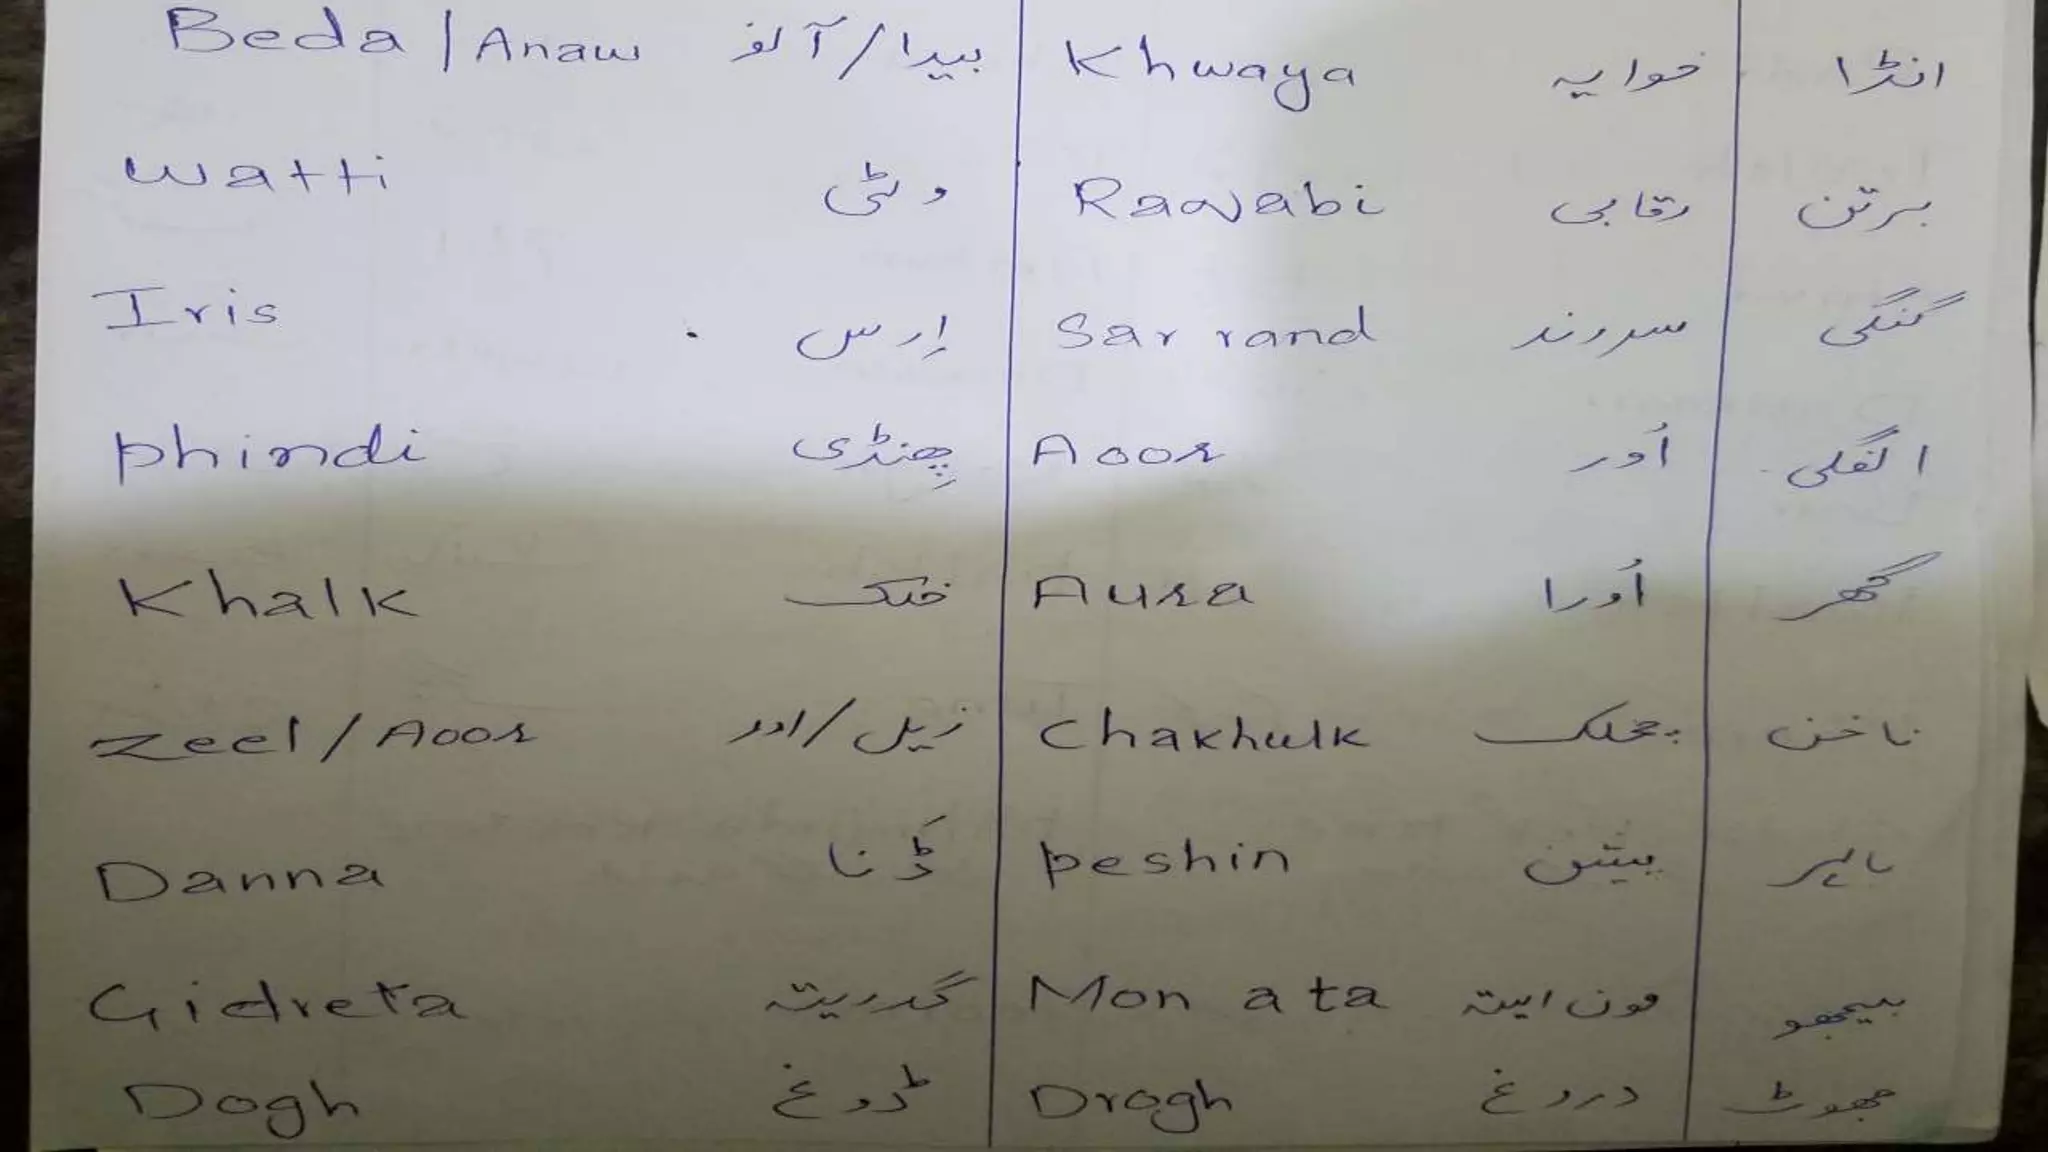 Beda / Anaw بیدا / آنو Khwaya خوایہ انڈا
Watti وٹی Raqabi رقابی برتن
Iris اِرس Sar rand سررند کنگی
Phindi پِھنڈی Aoor اُور انگلی
Khalk خلک Aura اُورا گھر
Zeel / Aoor زیل / اور Chakhulk چخلک ناخن
Danna ڈَنا Peshin پیشن باہر
Gidreta گدریتہ Mon ata مون ایتہ بیجھو
Dogh ڈوغ Drogh دروغ جھوٹ